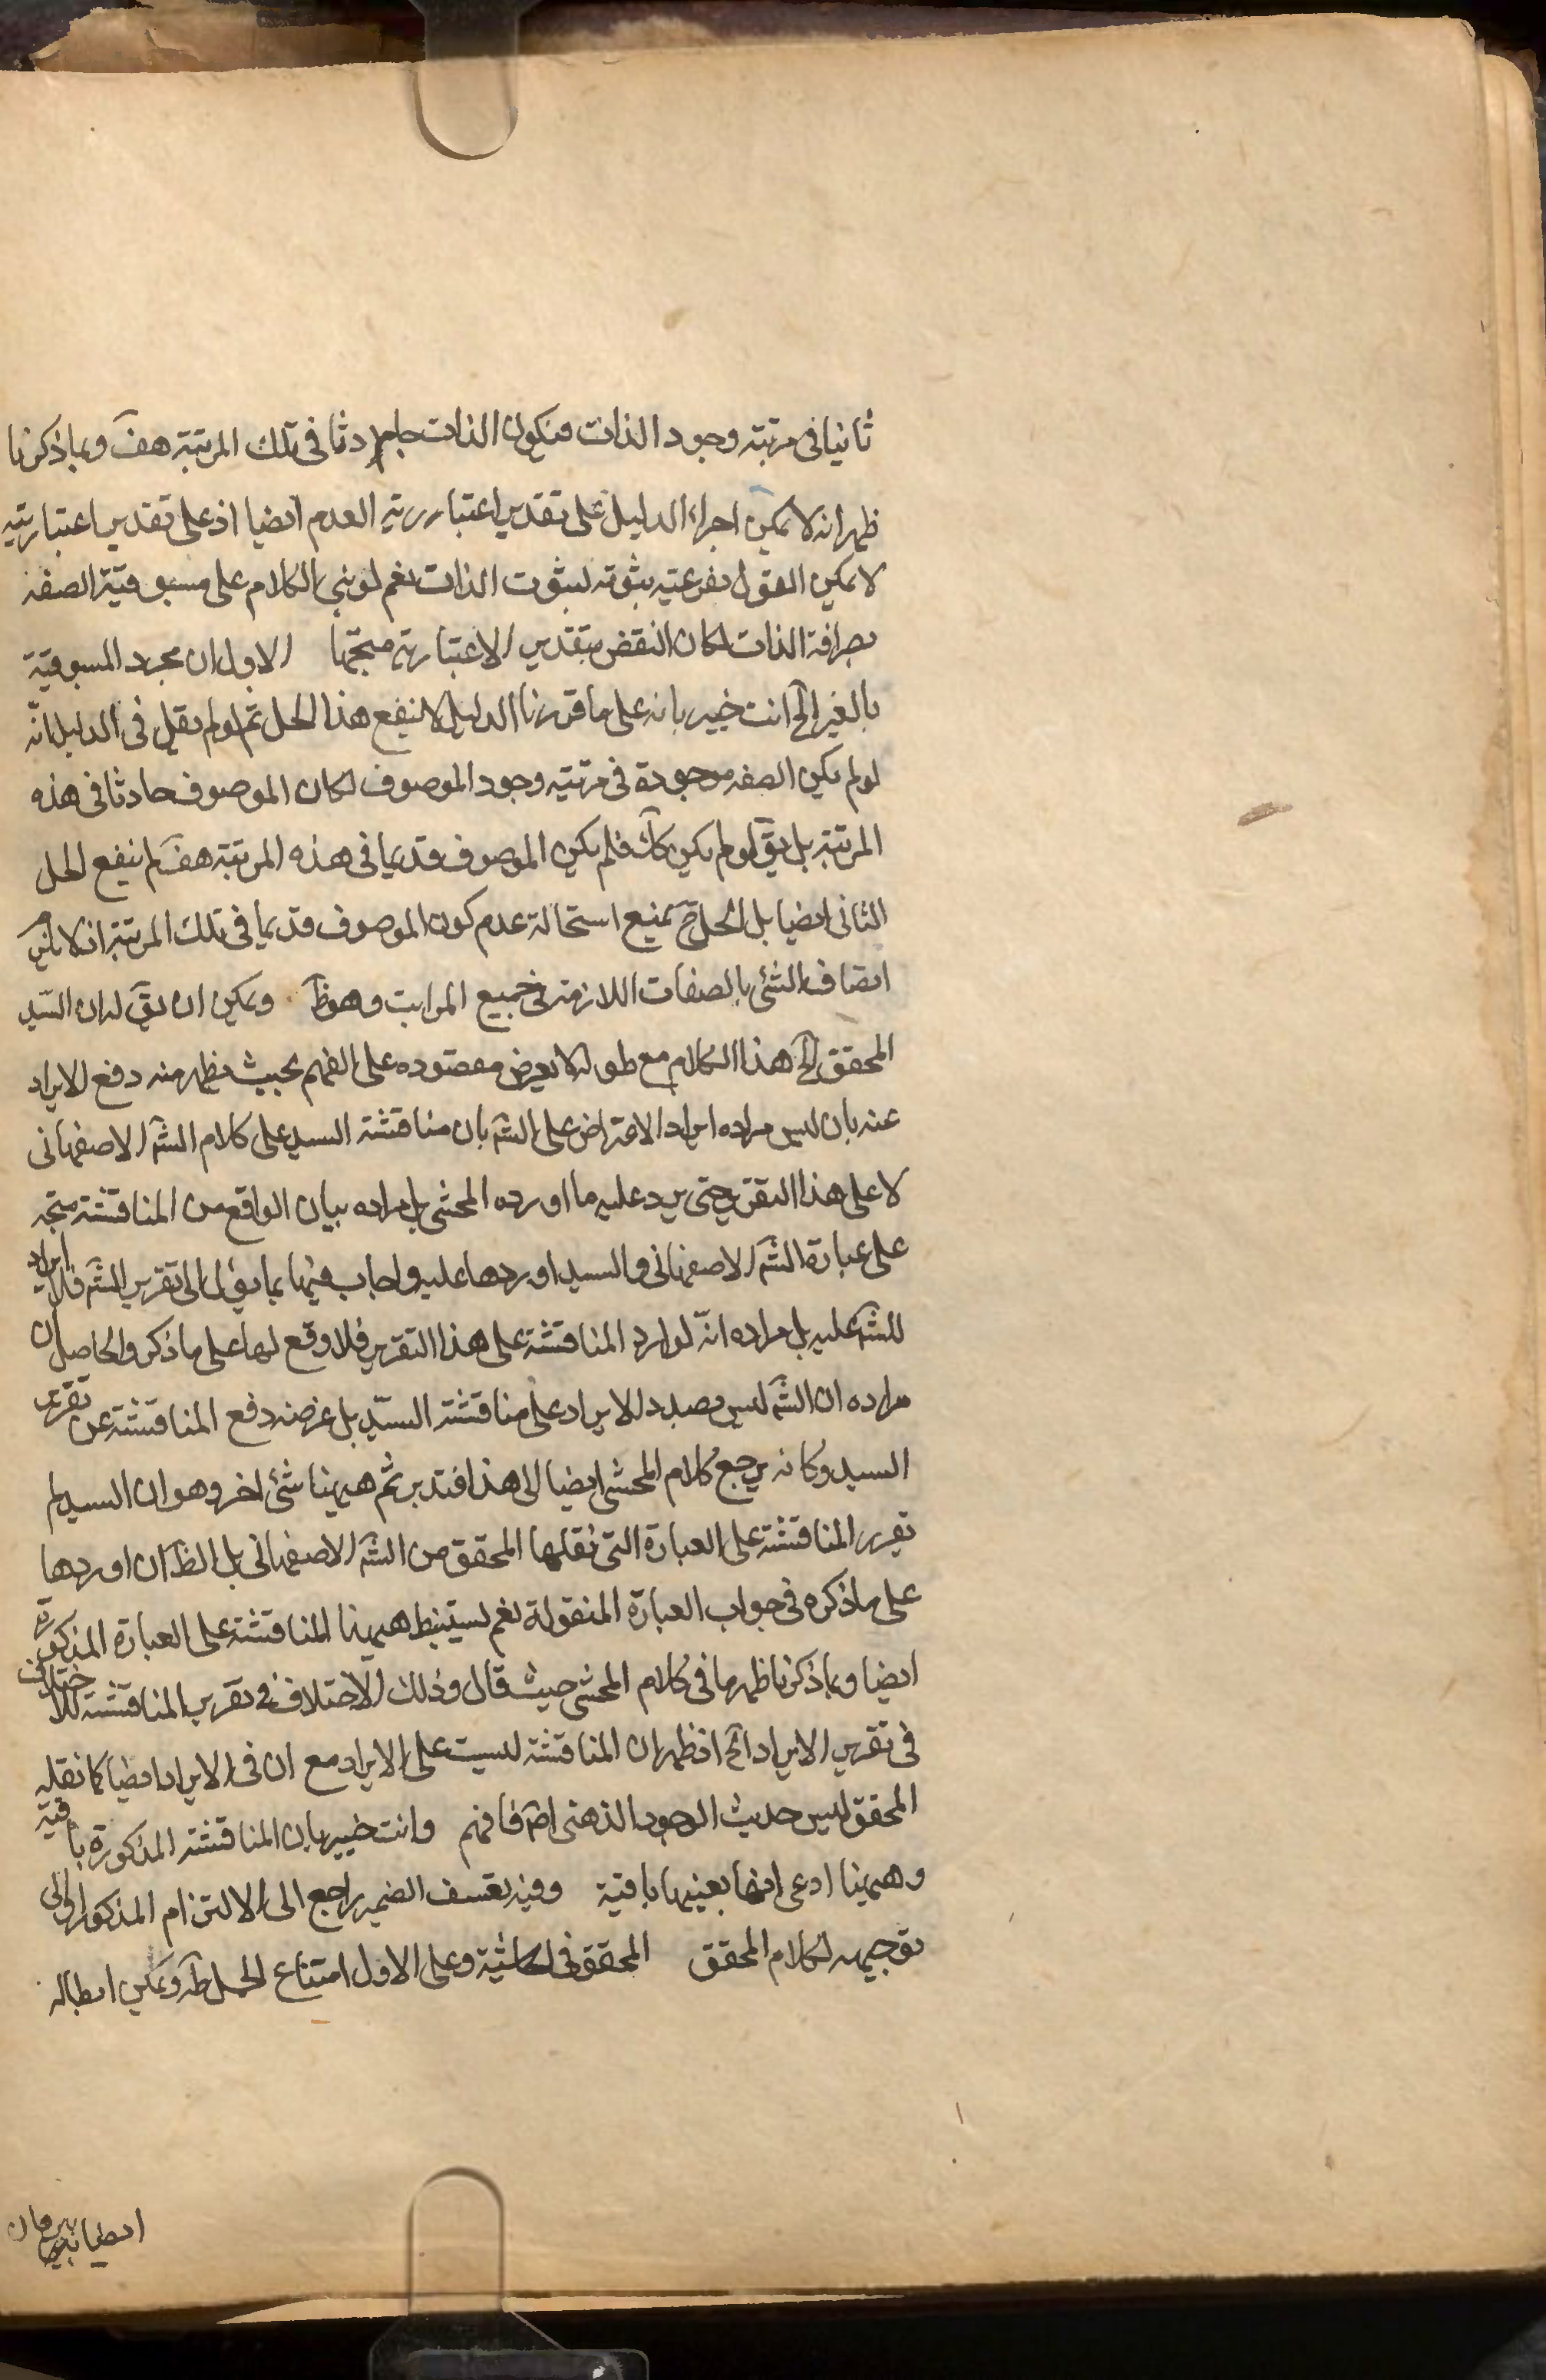 ثانيا فى مرتبة وجود الذات فيكون الذات حادثا فى تلك المرتبة هف وبما ذكرنا
ظهر انه لا يمكن اجراء الدليل على تقدير اعتبارية العدم ايضا اذ على تقدير اعتباريته
لا يمكن القول بفرعيته ثبوته لثبوت الذات نعم لو بنى الكلام على مسبوقية الصفة
بصرافة الذات لكان النقض بتقدير الاعتبارية متجها الاول ان مجرد المسبوقية
بالغير الخ انت خبير بانه على ما قررنا الدليل لا ينفع هذا الحل ثم لو لم يقل فى الدليل انه
لو لم يكن الصفة موجودة فى مرتبة وجود الموصوف لكان الموصوف حادثا فى هذه
المرتبة بل يق لو لم يكن كك فلم يكن الموصوف قديما فى هذه المرتبة هف لم ينفع الحل
الثانى ايضا بل الحل ح بمنع استحالة عدم كون الموصوف قديما فى تلك المرتبة اذ لا يلزم
اتصاف الشئ بالصفات اللازمة فى جميع المراتب وهو ظ ويمكن ان يق لدن السيد
المحقق الخ هذا الكلام مع طوله لا يعرض مقصوده على الفهم بحيث يظهر منه دفع الايراد
عنه بان ليس مراده ايراد الاعتراض على الش بان مناقشة السيد على كلام الش الاصفهانى
لا على هذا التقرير حتى يرد عليه ما اورده المحشى بل مراده بيان الواقع من المناقشة متجه
على عبارة الش الاصفهانى والسيد اوردها عليه واجاب فيها بما يؤل الى تقرير الش فلا ايراد
للش عليه بل مراده انه لو اورد المناقشة على هذا التقرير فلا وقع لها على ما ذكر والحاصل ان
مراده ان الش ليس بصدد الايراد على مناقشة السيد بل غرضه دفع المناقشة عن تقرير
السيد وكانه يرجع كلام المحشى ايضا الى هذا فتدبر ثم ههنا شئ اخر وهو ان السيد لم
يقرر المناقشة على العبارة التى نقلها المحقق من الش الاصفهانى بل الظ ان اوردها
على ما ذكره فى جواب العبارة المنقولة نعم يستنبط ههنا المناقشة على العبارة المذكورة
ايضا وبما ذكرنا ظهر ما فى كلام المحشى حيث قال وذلك الاختلاف فى تقرير المناقشة للاختلاف
فى تقرير الايراد الخ اذ ظهر ان المناقشة ليست على الايراد مع ان فى الايراد ايضا كما نقله
المحقق ليس حديث الوجود الذهنى اصلا فافهم وانت خبير بان المناقشة المذكورة باقية
وههنا ادعى انها بعينها باقية وفيه تعسف الضمير راجع الى الالتزام المذكور اولى
توجيهه لكلام المحقق المحقق فى الحاشية وعلى الاول امتناع الحمل ظ ويمكن ابطاله
ايضا